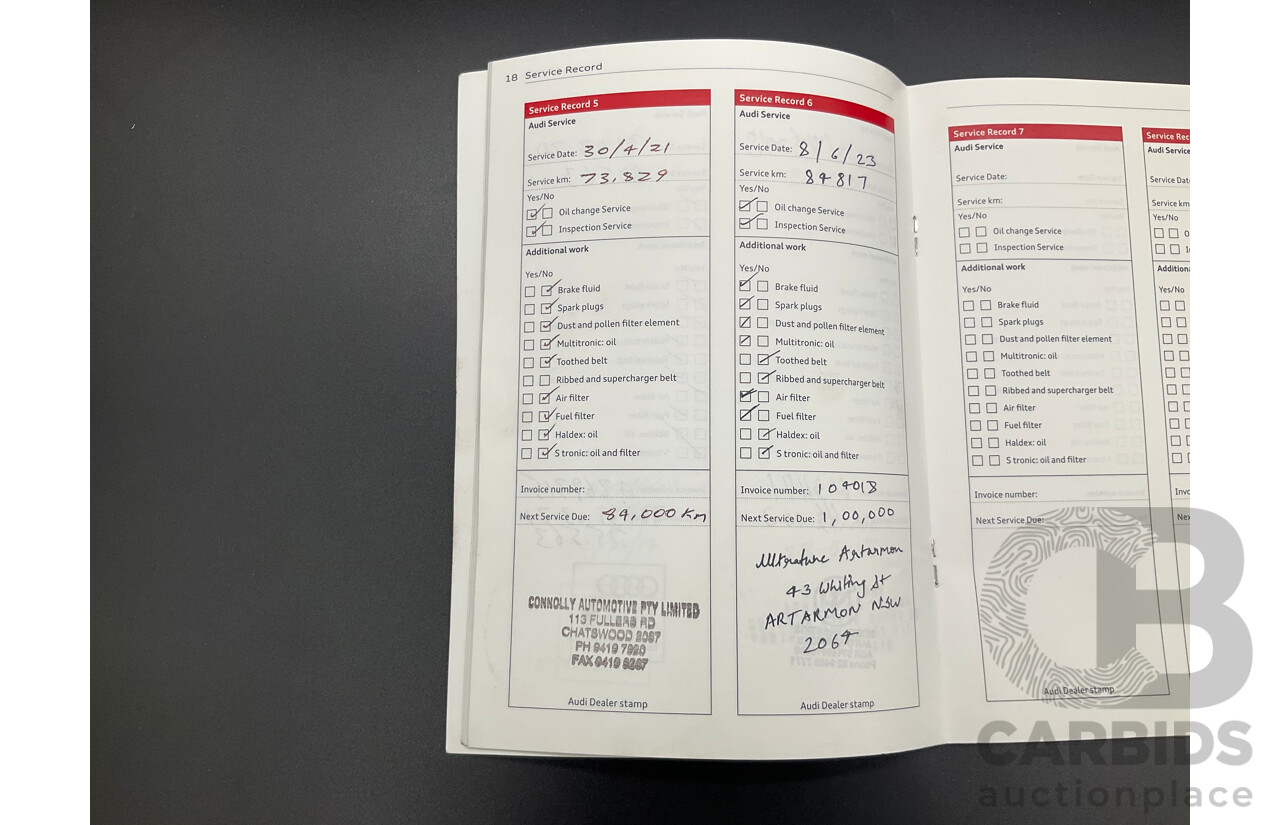 18 Service Record
Service Record 5
Audi Service
Service Date: 30/4/21
Service km: 73,829
Yes/No
Oil change Service
Inspection Service
Additional work
Yes/No
Brake fluid
Spark plugs
Dust and pollen filter element
Multitronic: oil
Toothed belt
Ribbed and supercharger belt
Air filter
Fuel filter
Haldex: oil
S tronic: oil and filter
Invoice number:
Next Service Due: 84,000 Km
CONNOLLY AUTOMOTIVE PTY LIMITED
113 FULLERS RD
CHATSWOOD 2067
PH 9419 7920
FAX 9419
Audi Dealer stamp
Service Record 6
Audi Service
Service Date: 8/6/23
Service km: 84817
Yes/No
Oil change Service
Inspection Service
Additional work
Yes/No
Brake fluid
Spark plugs
Dust and pollen filter element
Multitronic: oil
Toothed belt
Ribbed and supercharger belt
Air filter
Fuel filter
Haldex: oil
S tronic: oil and filter
Invoice number: 104018
Next Service Due: 1,00,000
Ultratune Artarmon
43 Whiting St
ARTARMON NSW
2064
Audi Dealer stamp
Service Record 7
Audi Service
Service Date:
Service km:
Yes/No
Oil change Service
Inspection Service
Additional work
Yes/No
Brake fluid
Spark plugs
Dust and pollen filter element
Multitronic: oil
Toothed belt
Ribbed and supercharger belt
Air filter
Fuel filter
Haldex: oil
S tronic: oil and filter
Invoice number:
Next Service Due:
Audi Dealer stamp
Service Rec
Audi Service
Service Dat
Service km
Yes/No
O
Addition
Yes/No
Invoic
Next
CB
CARBIDS
auctionplace